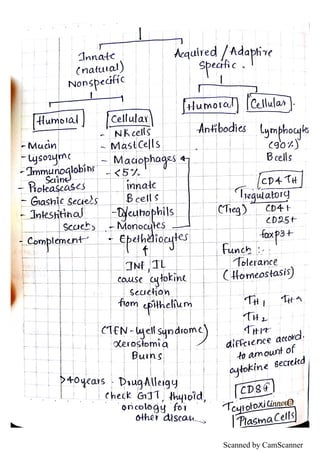 Innate
(natural)
Nonspecific
Acquired / Adaptive
Specific.
Humoral
Cellular
Humoral
Cellular.
- Mucin
- Lysozyme
- Immunoglobins
- Proteascases
- Gastric Secrets
- Intestitinal
Secrets
- Complement
- NK cells
- Mast Cells
- Macrophages
- <5%
innate
B cells
- Neutrophils
- Monocytes
- Epetheliocytes
INF, IL
cause cytokine
secretion
from epithelium
(TEN - Lyell syndrome)
xerostomia
Burns
>40 years - Drug Allergy
check GIT, thyroid,
oncology for
other diseau
Antibodies
Lymphocyte
(90%)
B cells
CD4 TH
Tregulatory
(Treg) CD4+
CD25+
foxp3+
Funcn :-
Tolerance
(Homeostasis)
TH1
TH2
TH17
difference accord.
to amount of
cytokine secreted
CD8+
Tcytotoxic
Plasma Cells
Scanned by CamScanner